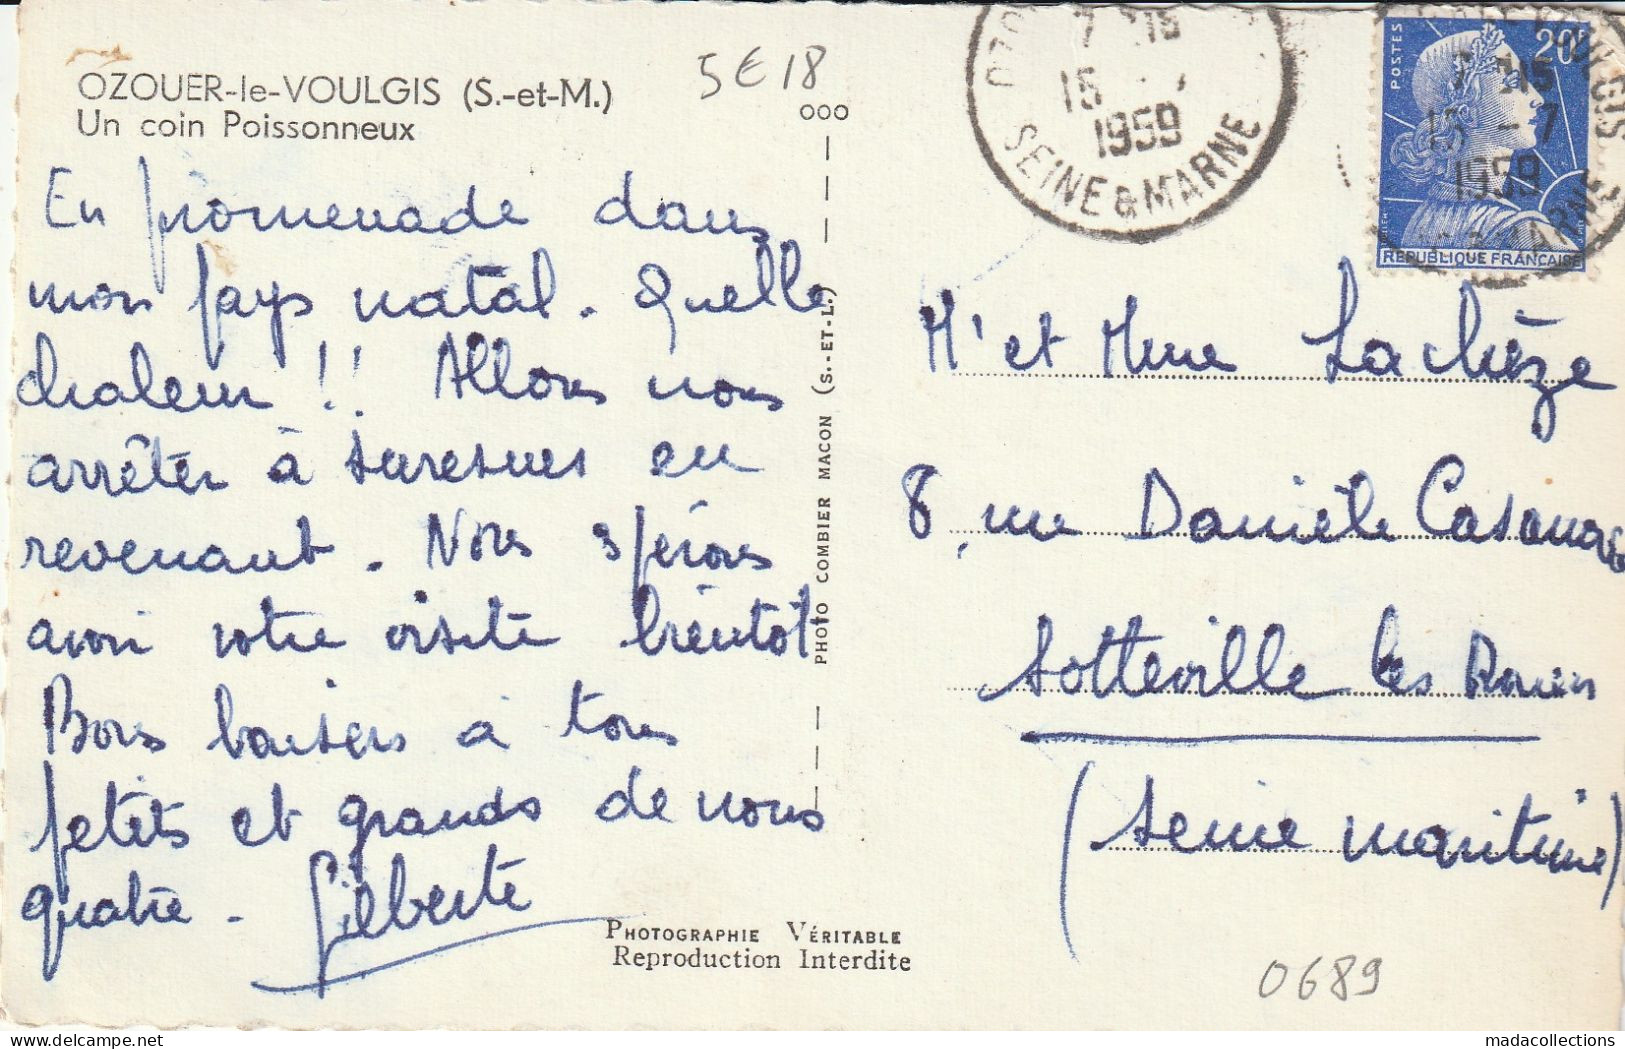 OZOUER-le-VOULGIS (S.-et-M.)
Un coin Poissonneux
5 E 18
ooo
En promenade dans
mon pays natal. Quelle
chaleur !! Allons nous
arrêter à Suresnes en
revenant. Nous espérons
avoir votre visite bientôt
Bons baisers à tous
petits et grands de nous
quatre - Gilberte
PHOTO COMBIER MACON (S.-ET-L.)
PHOTOGRAPHIE VÉRITABLE
Reproduction Interdite
15
1959
SEINE & MARNE
POSTES
20F
15 - 7
1959
REPUBLIQUE FRANÇAISE
Mr et Mme Lachèze
8, rue Danièle Casanova
Sotteville les Rouen
(Seine maritime)
0689
madacollections